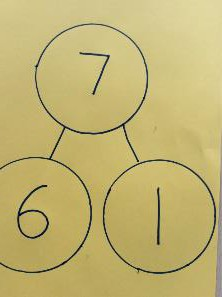 7
6 1